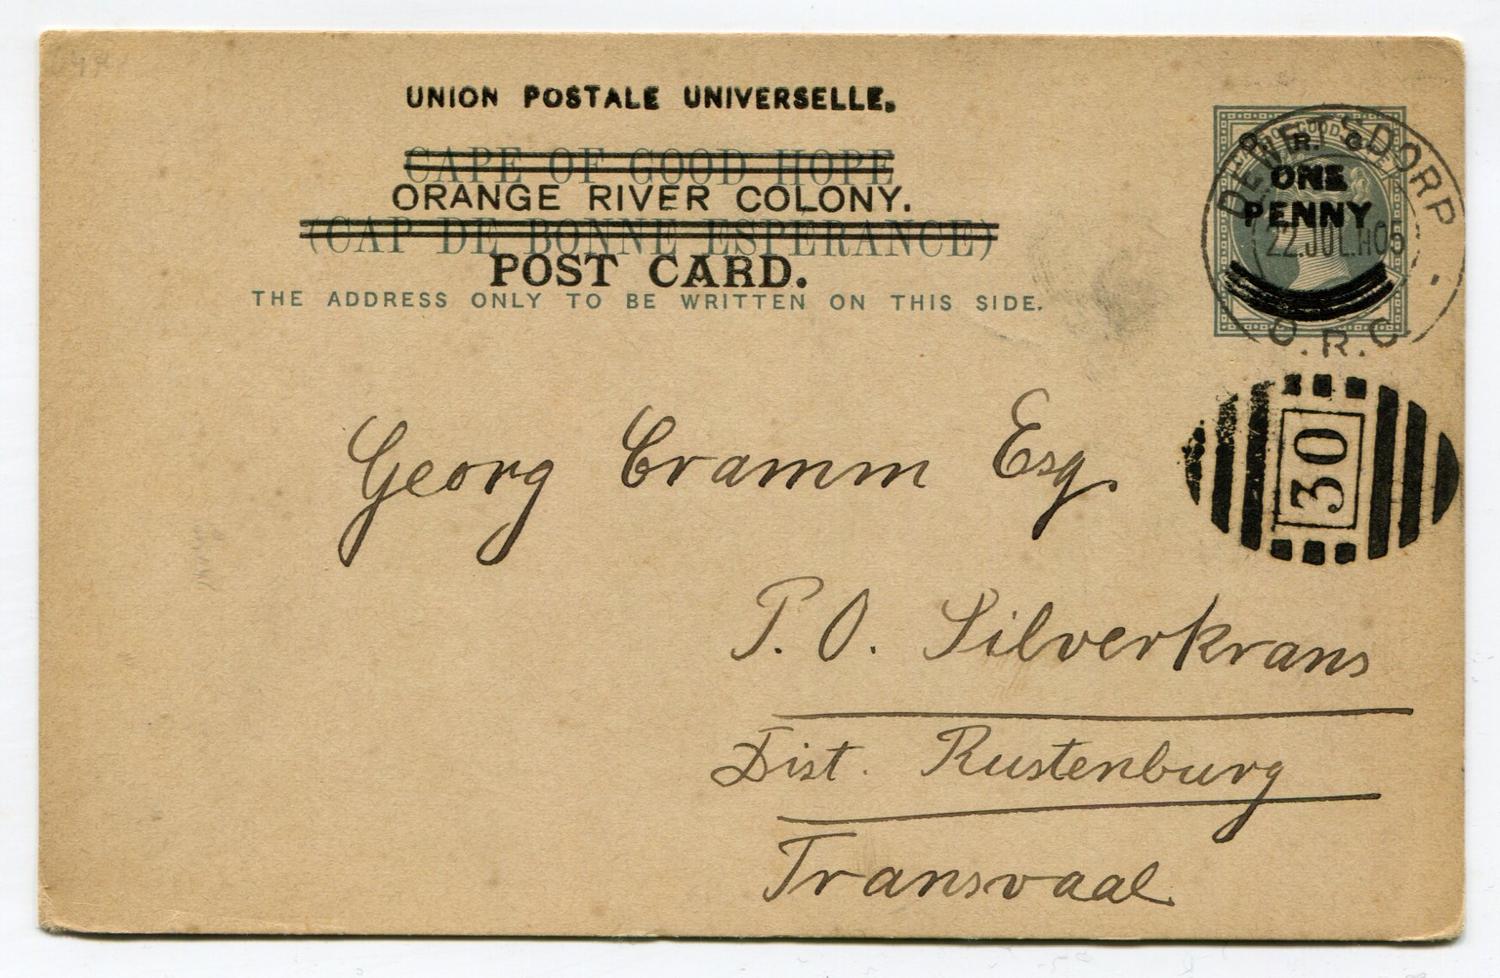 UNION POSTALE UNIVERSELLE.
CAPE OF GOOD HOPE
ORANGE RIVER COLONY.
(CAP DE BONNE ESPERANCE)
POST CARD.
THE ADDRESS ONLY TO BE WRITTEN ON THIS SIDE.
O. R. C.
ONE
PENNY
DEWETSDORP
22.JUL.05
O.R.C
30
Georg Cramm Esq.
P. O. Silverkrans
Dist. Rustenburg
Transvaal